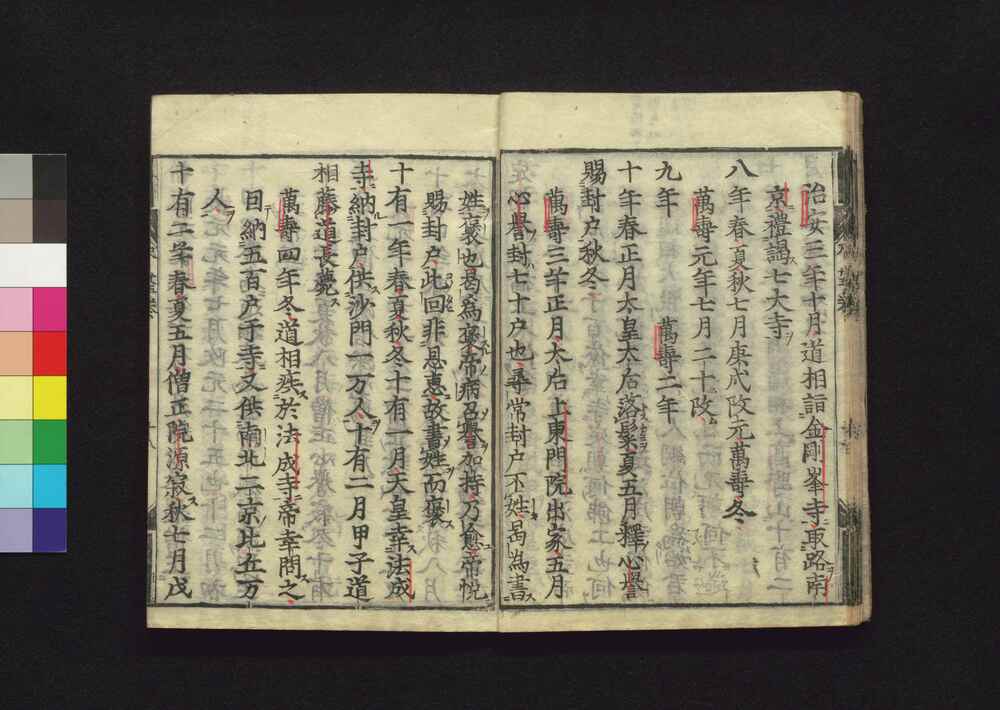 治安三年十月道相詣金剛峯寺取路南
京禮謁七大寺
八年春夏秋七月庚戌改元萬壽冬
萬壽元年七月二十改
九年　萬壽二年
十年春正月太皇太后落髮夏五月釋心譽
賜封户秋冬
萬壽三年正月太后上東門院出家五月
心譽封七十户也尋常封户不姓曷為書
姓褒也曷為褒帝病召譽加持乃愈帝悦
賜封户此回非恩惠故書姓而褒
十有一年春夏秋冬十有一月天皇幸法成
寺納封户供沙門一万人十有二月甲子道
相藤道長薨
萬壽四年冬道相疾於法成寺帝幸問之
日納五百户于寺又供南北二京比丘万
人
十有二年春夏五月僧正院源寂秋七月戊